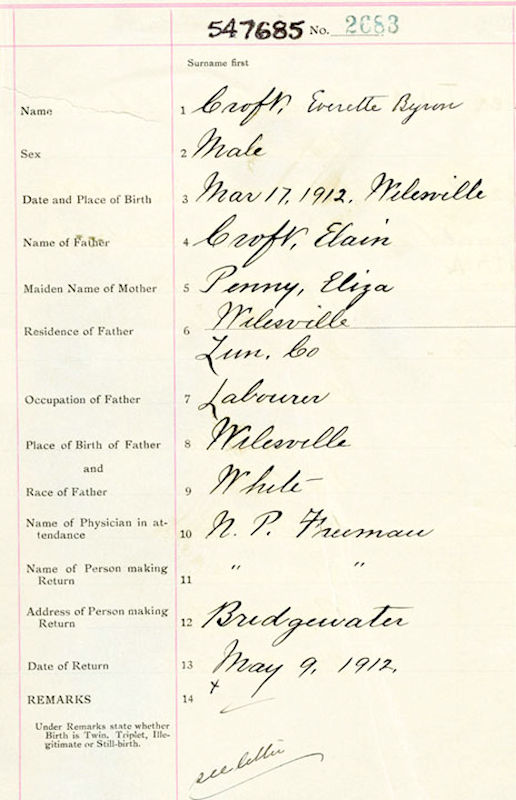 547685 No. 2683
Surname first
Name 1 Croft, Everette Byron
Sex 2 Male
Date and Place of Birth 3 Mar 17, 1912. Wilesville
Name of Father 4 Croft, Elain
Maiden Name of Mother 5 Penny, Eliza
Residence of Father 6 Wilesville
Lun. Co
Occupation of Father 7 Labourer
Place of Birth of Father 8 Wilesville
and
Race of Father 9 White
Name of Physician in at-
tendance 10 N. P. Freeman
Name of Person making
Return 11 " "
Address of Person making
Return 12 Bridgewater
Date of Return 13 May 9, 1912.
REMARKS 14 x
Under Remarks state whether
Birth is Twin, Triplet, Ille-
gitimate or Still-birth.
see letter